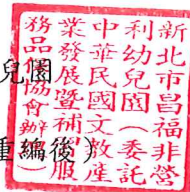 新北市昌福非營
利幼兒園（委託
中華民國文教產
業發展暨補
服
務品
協會辦
兒園
重編後）